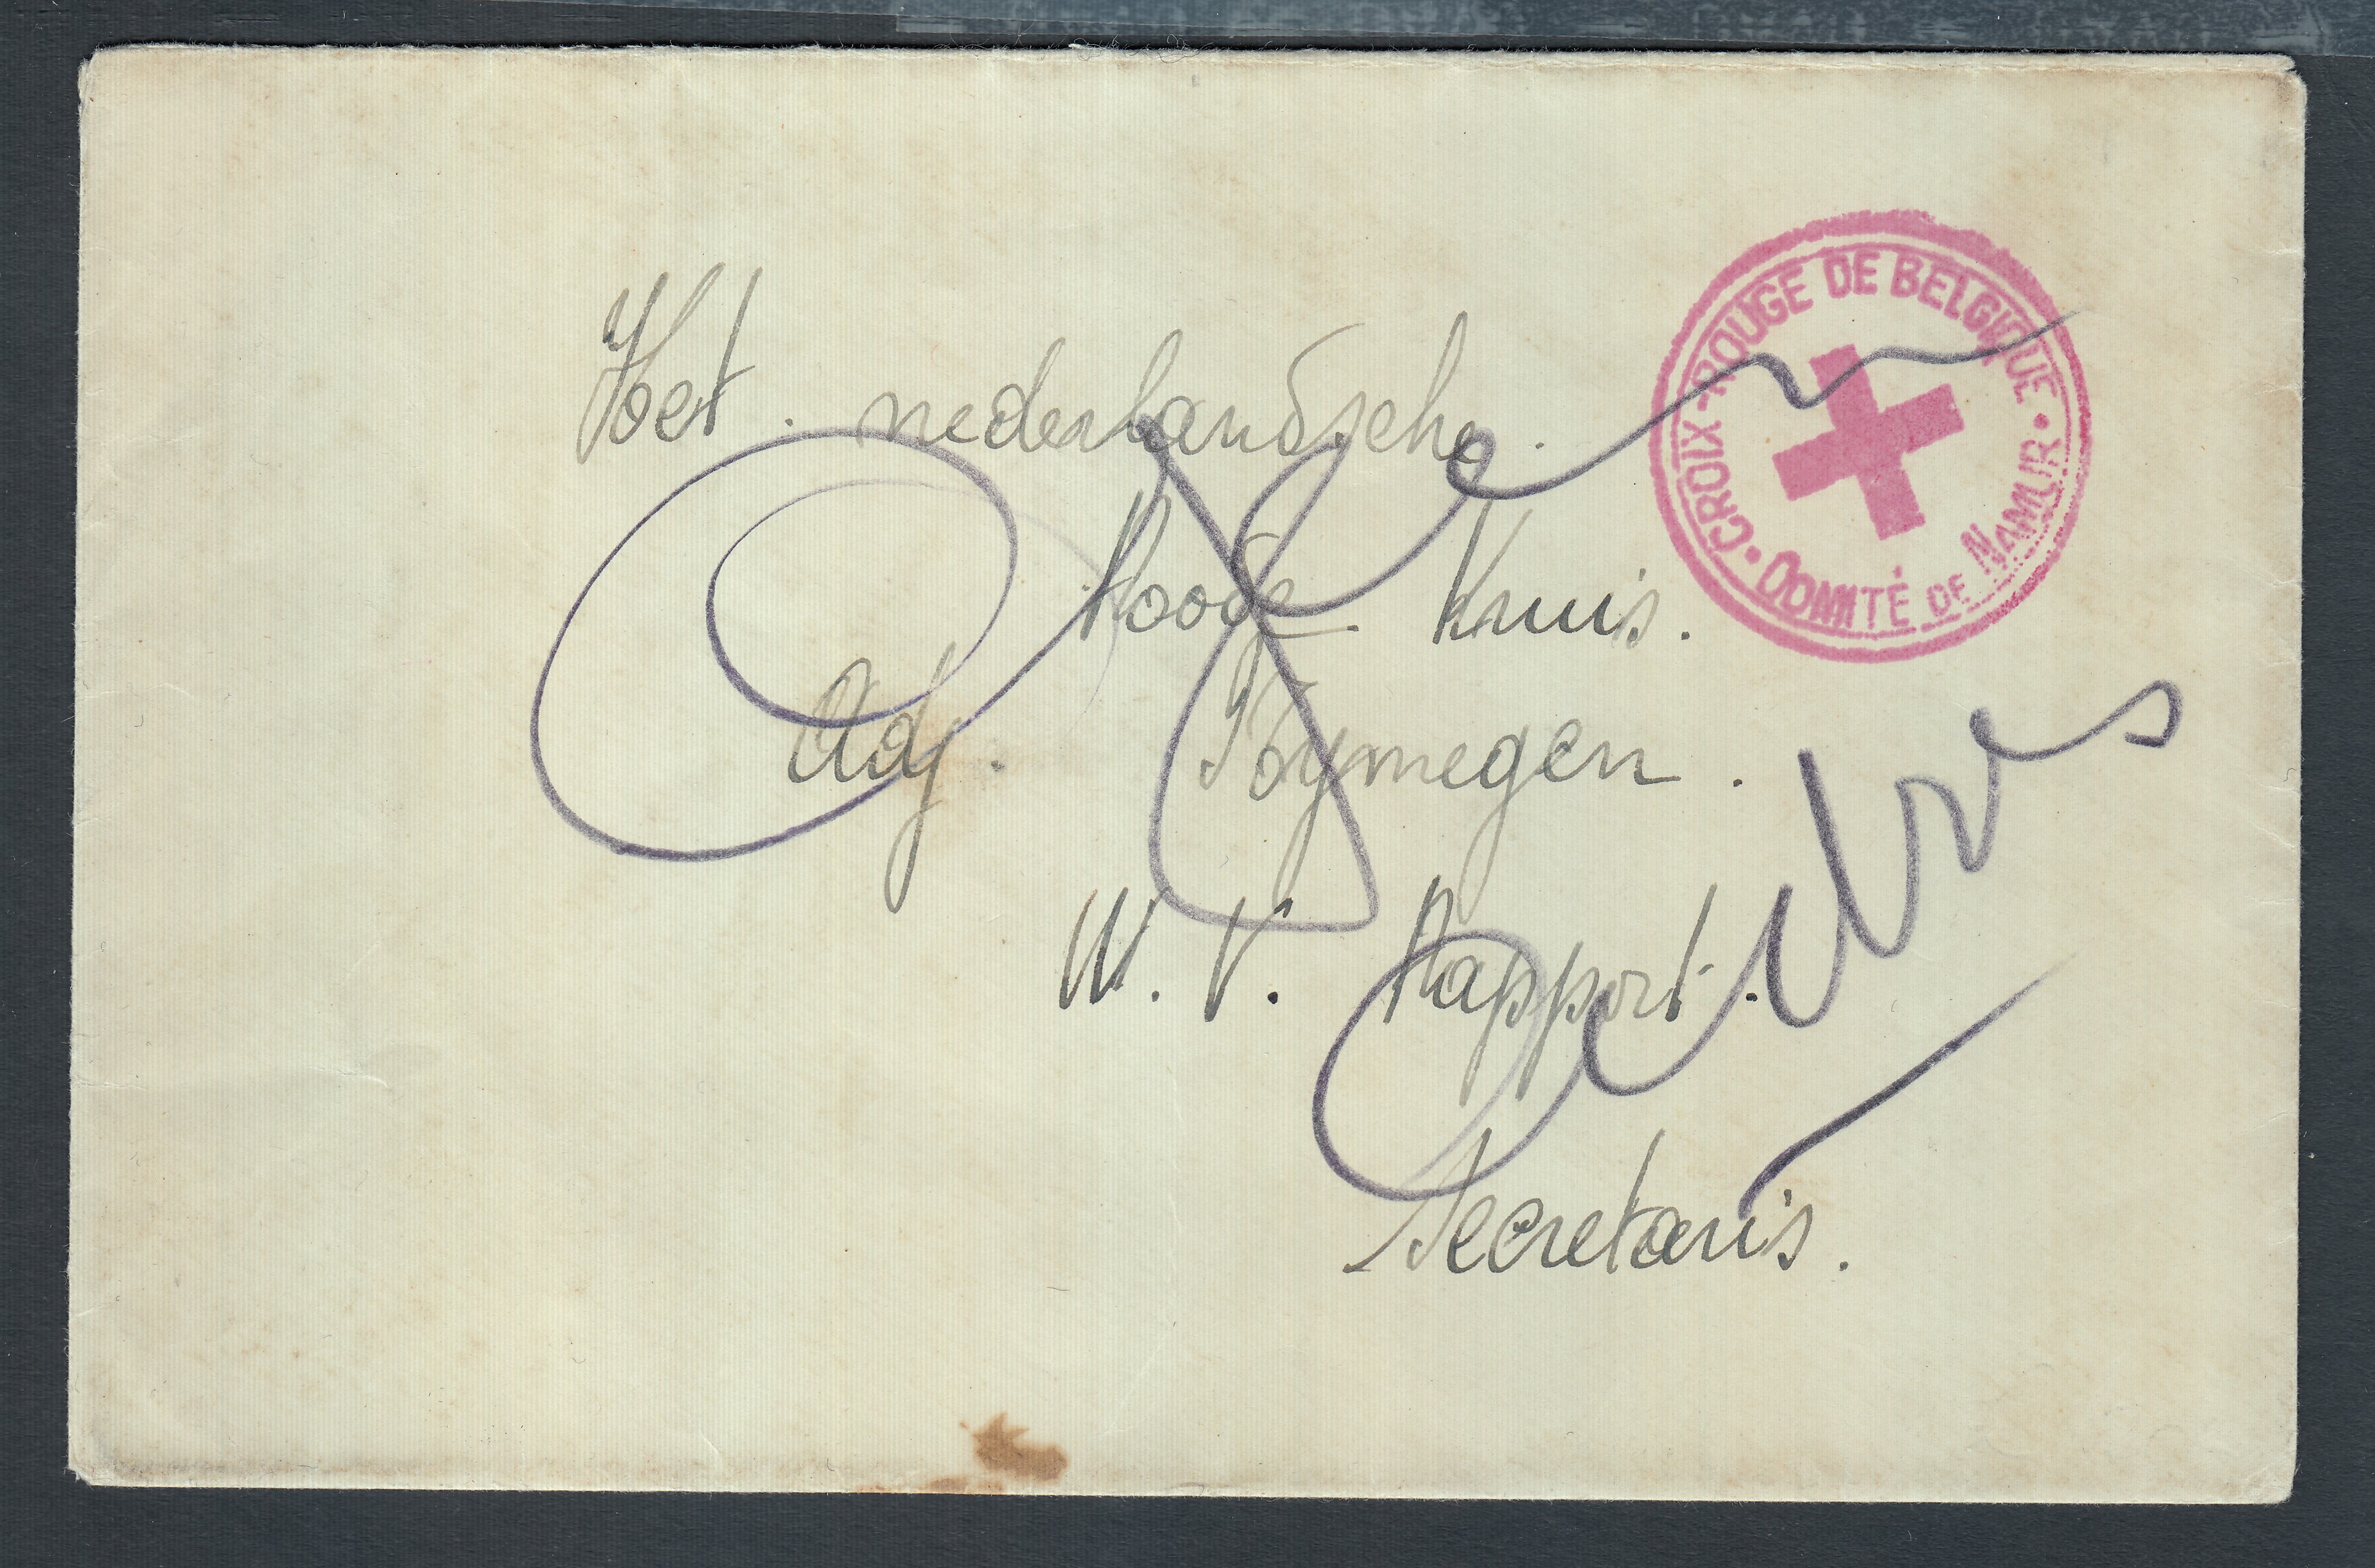 Het. nederlandsche.
Roode. Kruis.
Adj. Nymegen.
W. V. Rapport.
Secretaris.
CROIX-ROUGE DE BELGIQUE
COMITÉ DE NAMUR